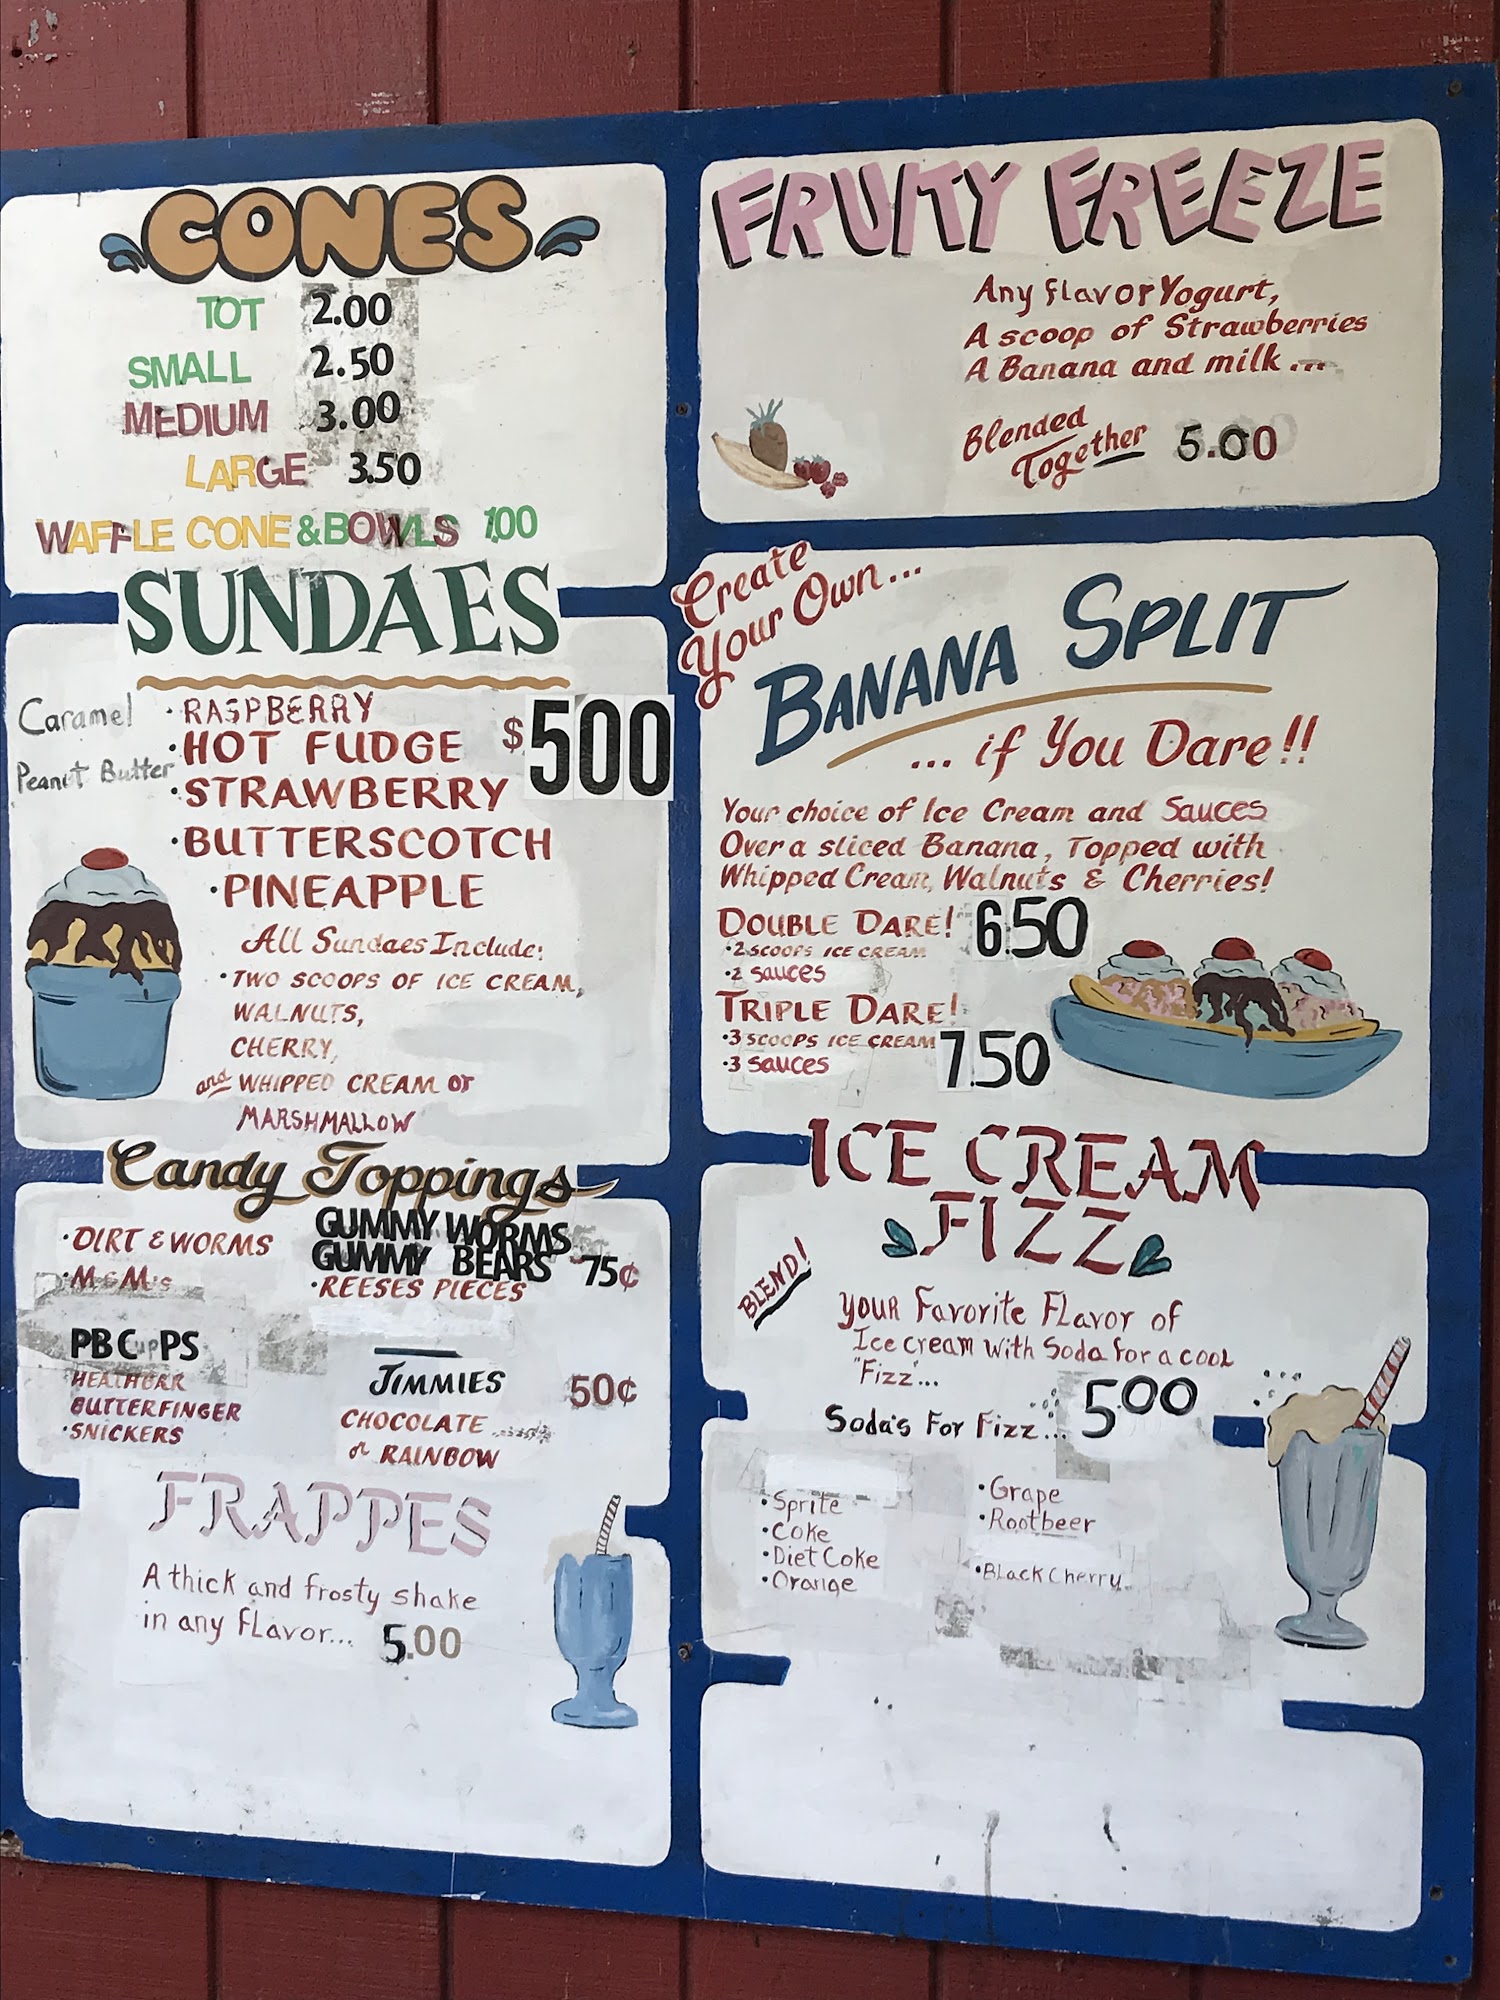 CONES
TOT 2.00
SMALL 2.50
MEDIUM 3.00
LARGE 3.50
WAFFLE CONE & BOWLS 1.00
SUNDAES
Caramel
Peanut Butter
• RASPBERRY
• HOT FUDGE
• STRAWBERRY
• BUTTERSCOTCH
• PINEAPPLE
$500
All Sundaes Include:
• TWO SCOOPS OF ICE CREAM,
WALNUTS,
CHERRY,
and WHIPPED CREAM or
MARSHMALLOW
Candy Toppings
• DIRT & WORMS
• M&M's
PB CupPS
HEATHBAR
BUTTERFINGER
• SNICKERS
GUMMY WORMS
GUMMY BEARS 75¢
• REESES PIECES
JIMMIES 50¢
CHOCOLATE
or RAINBOW
FRAPPES
A thick and frosty shake
in any flavor... 5.00
FRUITY FREEZE
Any flavor Yogurt,
A scoop of Strawberries
A Banana and milk...
Blended
Together 5.00
Create
Your Own...
BANANA SPLIT
... if You Dare!!
Your choice of Ice Cream and Sauces
Over a sliced Banana, Topped with
Whipped Cream, Walnuts & Cherries!
DOUBLE DARE! 6.50
• 2 SCOOPS ICE CREAM
• 2 sauces
TRIPLE DARE!
• 3 SCOOPS ICE CREAM 7.50
• 3 sauces
ICE CREAM
FIZZ
BLEND!
YOUR Favorite Flavor of
Ice cream with Soda for a cool
"Fizz"...
Soda's For Fizz... 5.00
• Sprite
• Coke
• Diet Coke
• Orange
• Grape
• Rootbeer
• Black Cherry